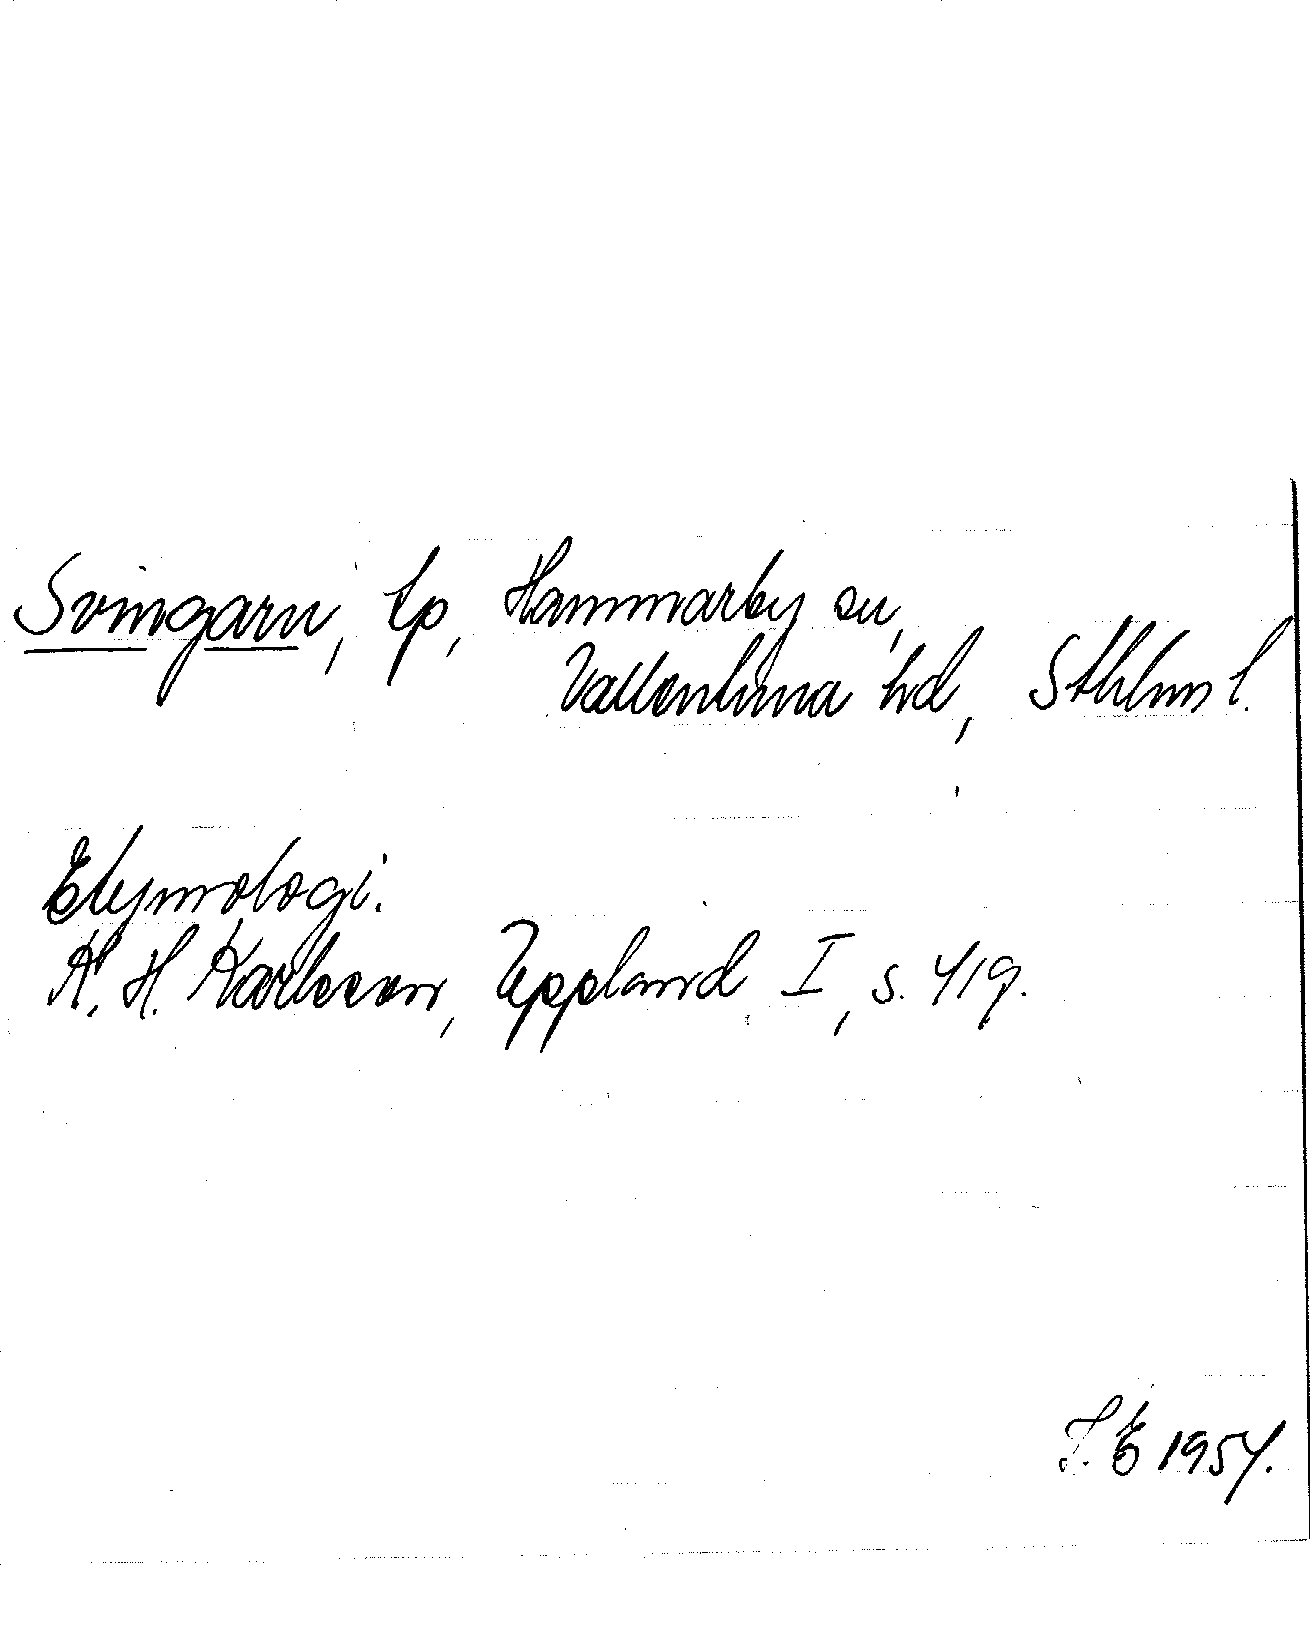 Svingarn, tp, Hammarby sn,
Vallentuna hd, Sthlms l.
Etymologi.
K. H. Karlsson, Uppland I, s. 419.
1954.